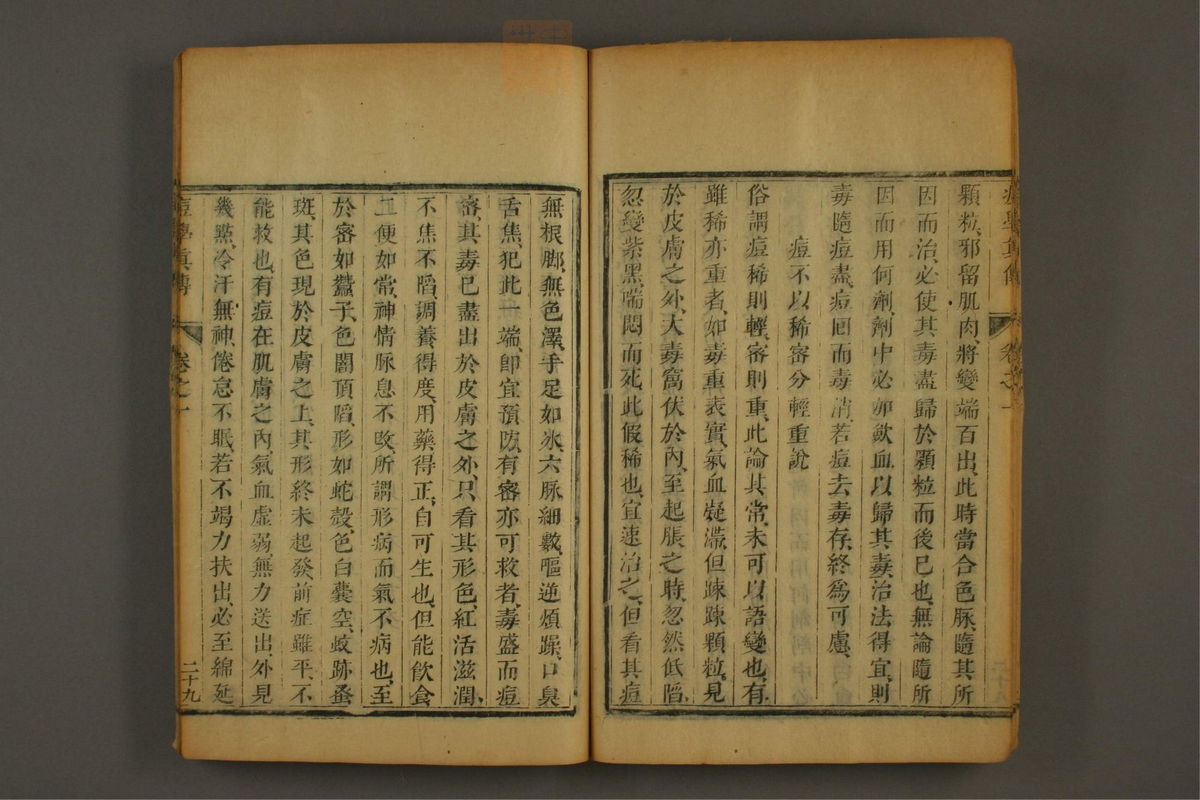 痘學真傳
卷之一
顆粒、邪留肌肉將變端百出、此時當合色脉、隨其所
因而治、必使其毒盡歸於顆粒而後已也、無論隨所
因而用何劑、劑中必加歛血以歸其毒、治法得宜、則
毒隨痘盡、痘囘而毒消、若痘去毒存、終爲可慮、
痘不以稀密分輕重說
俗謂痘稀則輕、密則重、此論其常、未可以語變也、有
雖稀亦重者、如毒重表實、氣血凝滯、但踈踈顆粒、見
於皮膚之外、大毒窩伏於內、至起脹之時、忽然低䧟、
忽變紫黑、喘悶而死、此假稀也、宜速治之、但看其痘
無根脚、無色澤、手足如氷、六脉細數、嘔逆煩躁、口臭
舌焦、犯此一端、即宜預防、有密亦可救者、毒盛而痘
密、其毒已盡出於皮膚之外、只看其形色、紅活滋潤、
不焦不䧟、調養得度、用藥得正、自可生也、但能飲食
二便如常、神情脉息不改、所謂形病而氣不病也、至
於密如蠶子、色闇頂䧟、形如蛇殼、色白囊空、蚊跡蚤
斑、其色現於皮膚之上、其形終未起發、前症雖平、不
能救也、有痘在肌膚之內、氣血虛弱、無力送出、外見
幾點、冷汗無神、倦怠不眠、若不竭力扶出、必至綿延
痘學真傳
卷之一
二十九